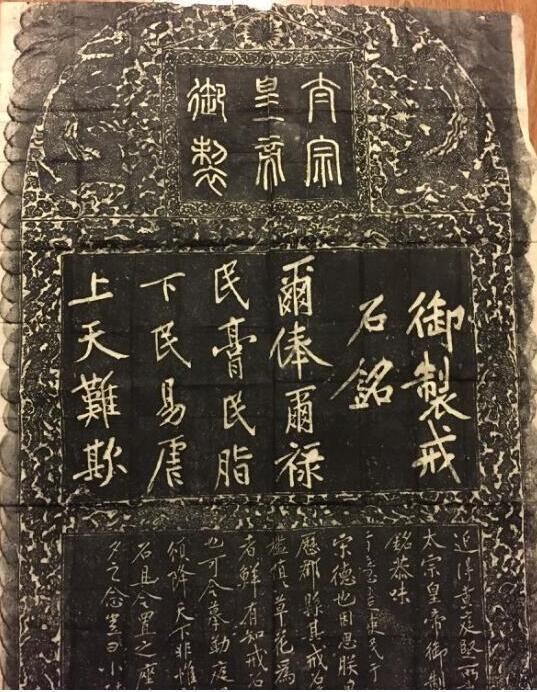 太宗
皇帝
御製
御製戒
石銘
爾俸爾禄
民膏民脂
下民易虐
上天難欺
近得黃庭堅所
太宗皇帝御製
銘恭味
民于
宗德也因思朕
歷郡縣其戒石
檻植草花為
者鮮有知戒石
也可令摹勒庭
頒降天下非惟
石且令置之座
夕之念豈曰小